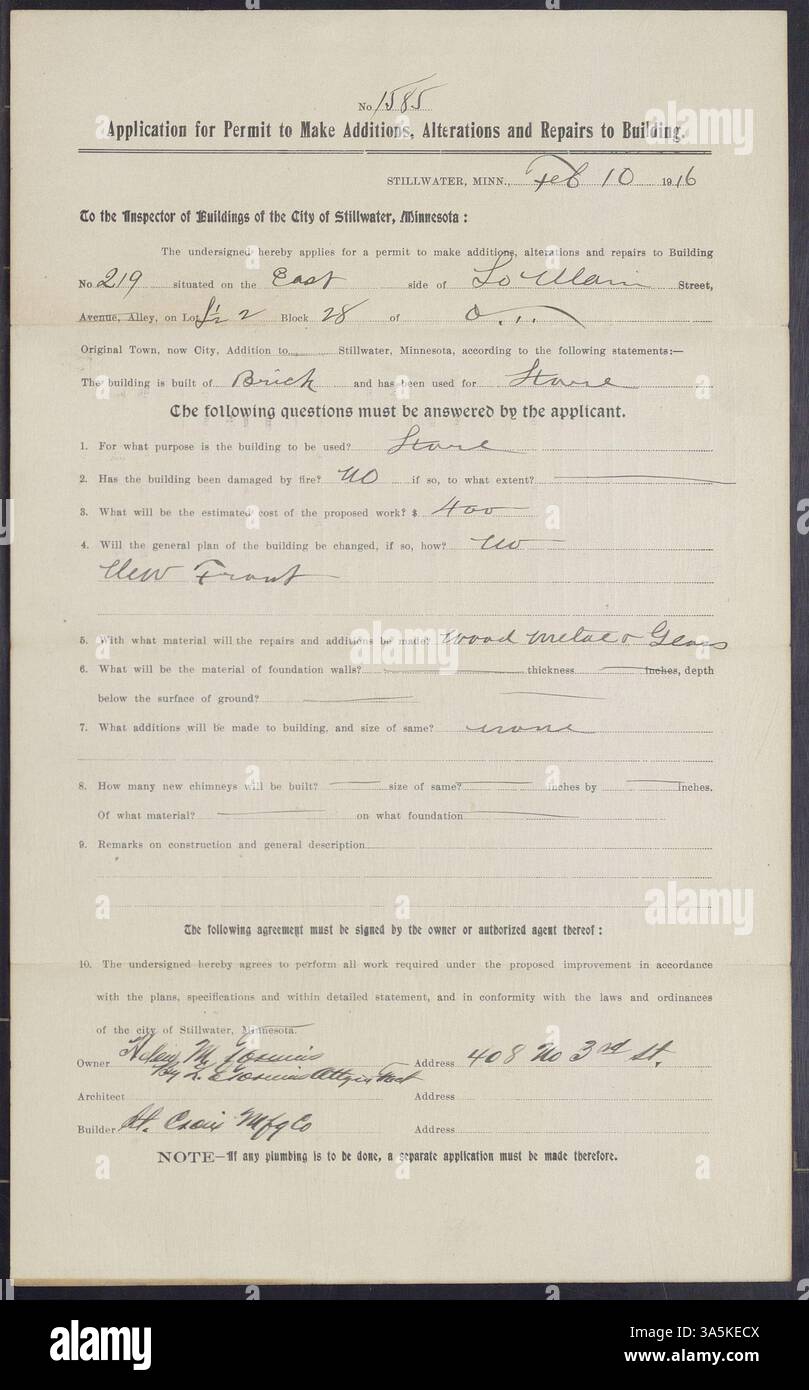 No. 1585
Application for Permit to Make Additions, Alterations and Repairs to Building.
STILLWATER, MINN., Feb 10 1916
To the Inspector of Buildings of the City of Stillwater, Minnesota:
The undersigned hereby applies for a permit to make additions, alterations and repairs to Building
No. 219 situated on the East side of So Main Street,
Avenue, Alley, on Lot 2 Block 28 of
Original Town, now City, Addition to Stillwater, Minnesota, according to the following statements:—
The building is built of Brick and has been used for Store
The following questions must be answered by the applicant.
1. For what purpose is the building to be used? Store
2. Has the building been damaged by fire? No if so, to what extent?
3. What will be the estimated cost of the proposed work? $ 400
4. Will the general plan of the building be changed, if so, how? No
New Front
5. With what material will the repairs and additions be made? Wood metal & Glass
6. What will be the material of foundation walls? thickness inches, depth
below the surface of ground?
7. What additions will be made to building, and size of same? none
8. How many new chimneys will be built? size of same? inches by inches.
Of what material? on what foundation
9. Remarks on construction and general description
The following agreement must be signed by the owner or authorized agent thereof:
10. The undersigned hereby agrees to perform all work required under the proposed improvement in accordance
with the plans, specifications and within detailed statement, and in conformity with the laws and ordinances
of the city of Stillwater, Minnesota.
Owner Helen M Address 408 No 3rd St.
By Atty in Fact
Architect Address
Builder St. Croix Mfg Co Address
NOTE—If any plumbing is to be done, a separate application must be made therefore.
alamy
Image ID: A3A5KECX
www.alamy.com